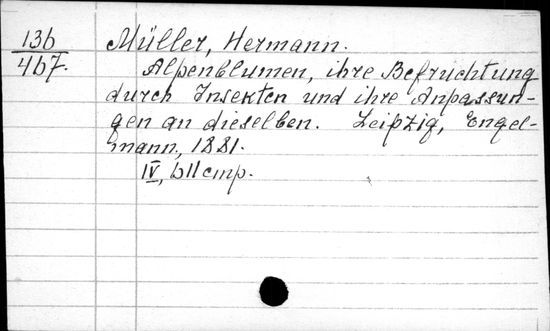 136 Müller, Hermann.
467. Alpenblumen, ihre Befruchtung
durch Insekten und ihre Anpassun-
gen an dieselben. Leipzig, Engel-
mann, 1881.
IV, 611 стр.